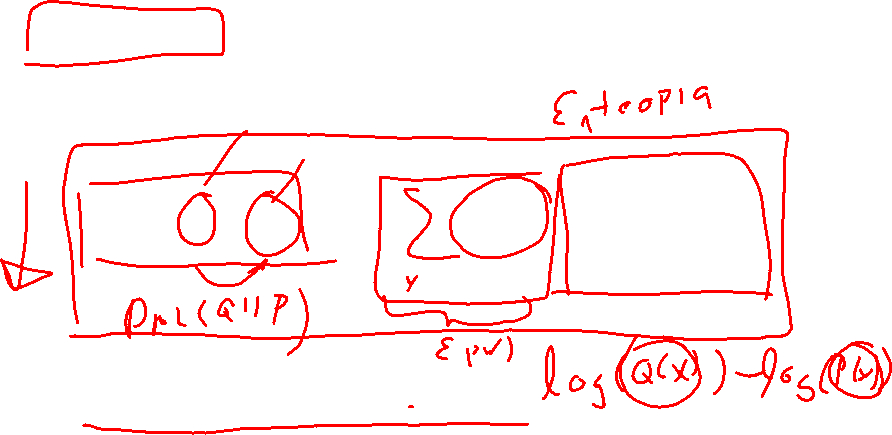 Entropia
Σ
x
DKL(Q||P)
log(Q(x)) - log(P(x))